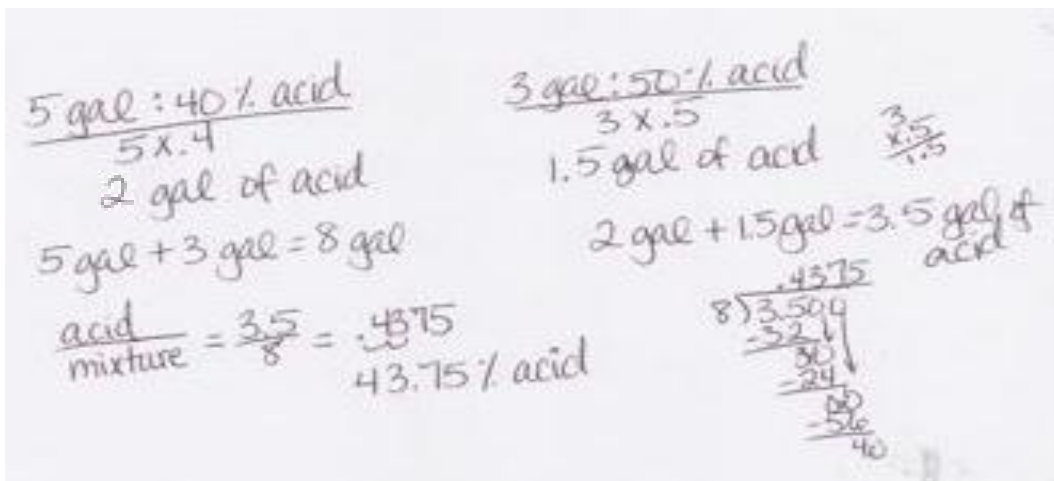 5 gal : 40 % acid
5 x .4
2 gal of acid
5 gal + 3 gal = 8 gal
acid / mixture = 3.5 / 8 = .4375
43.75 % acid
3 gal : 50 % acid
3 x .5
1.5 gal of acid
3
x .5
1.5
2 gal + 1.5 gal = 3.5 gal of
acid
.4375
8)3.500
-32
30
-24
60
-56
40